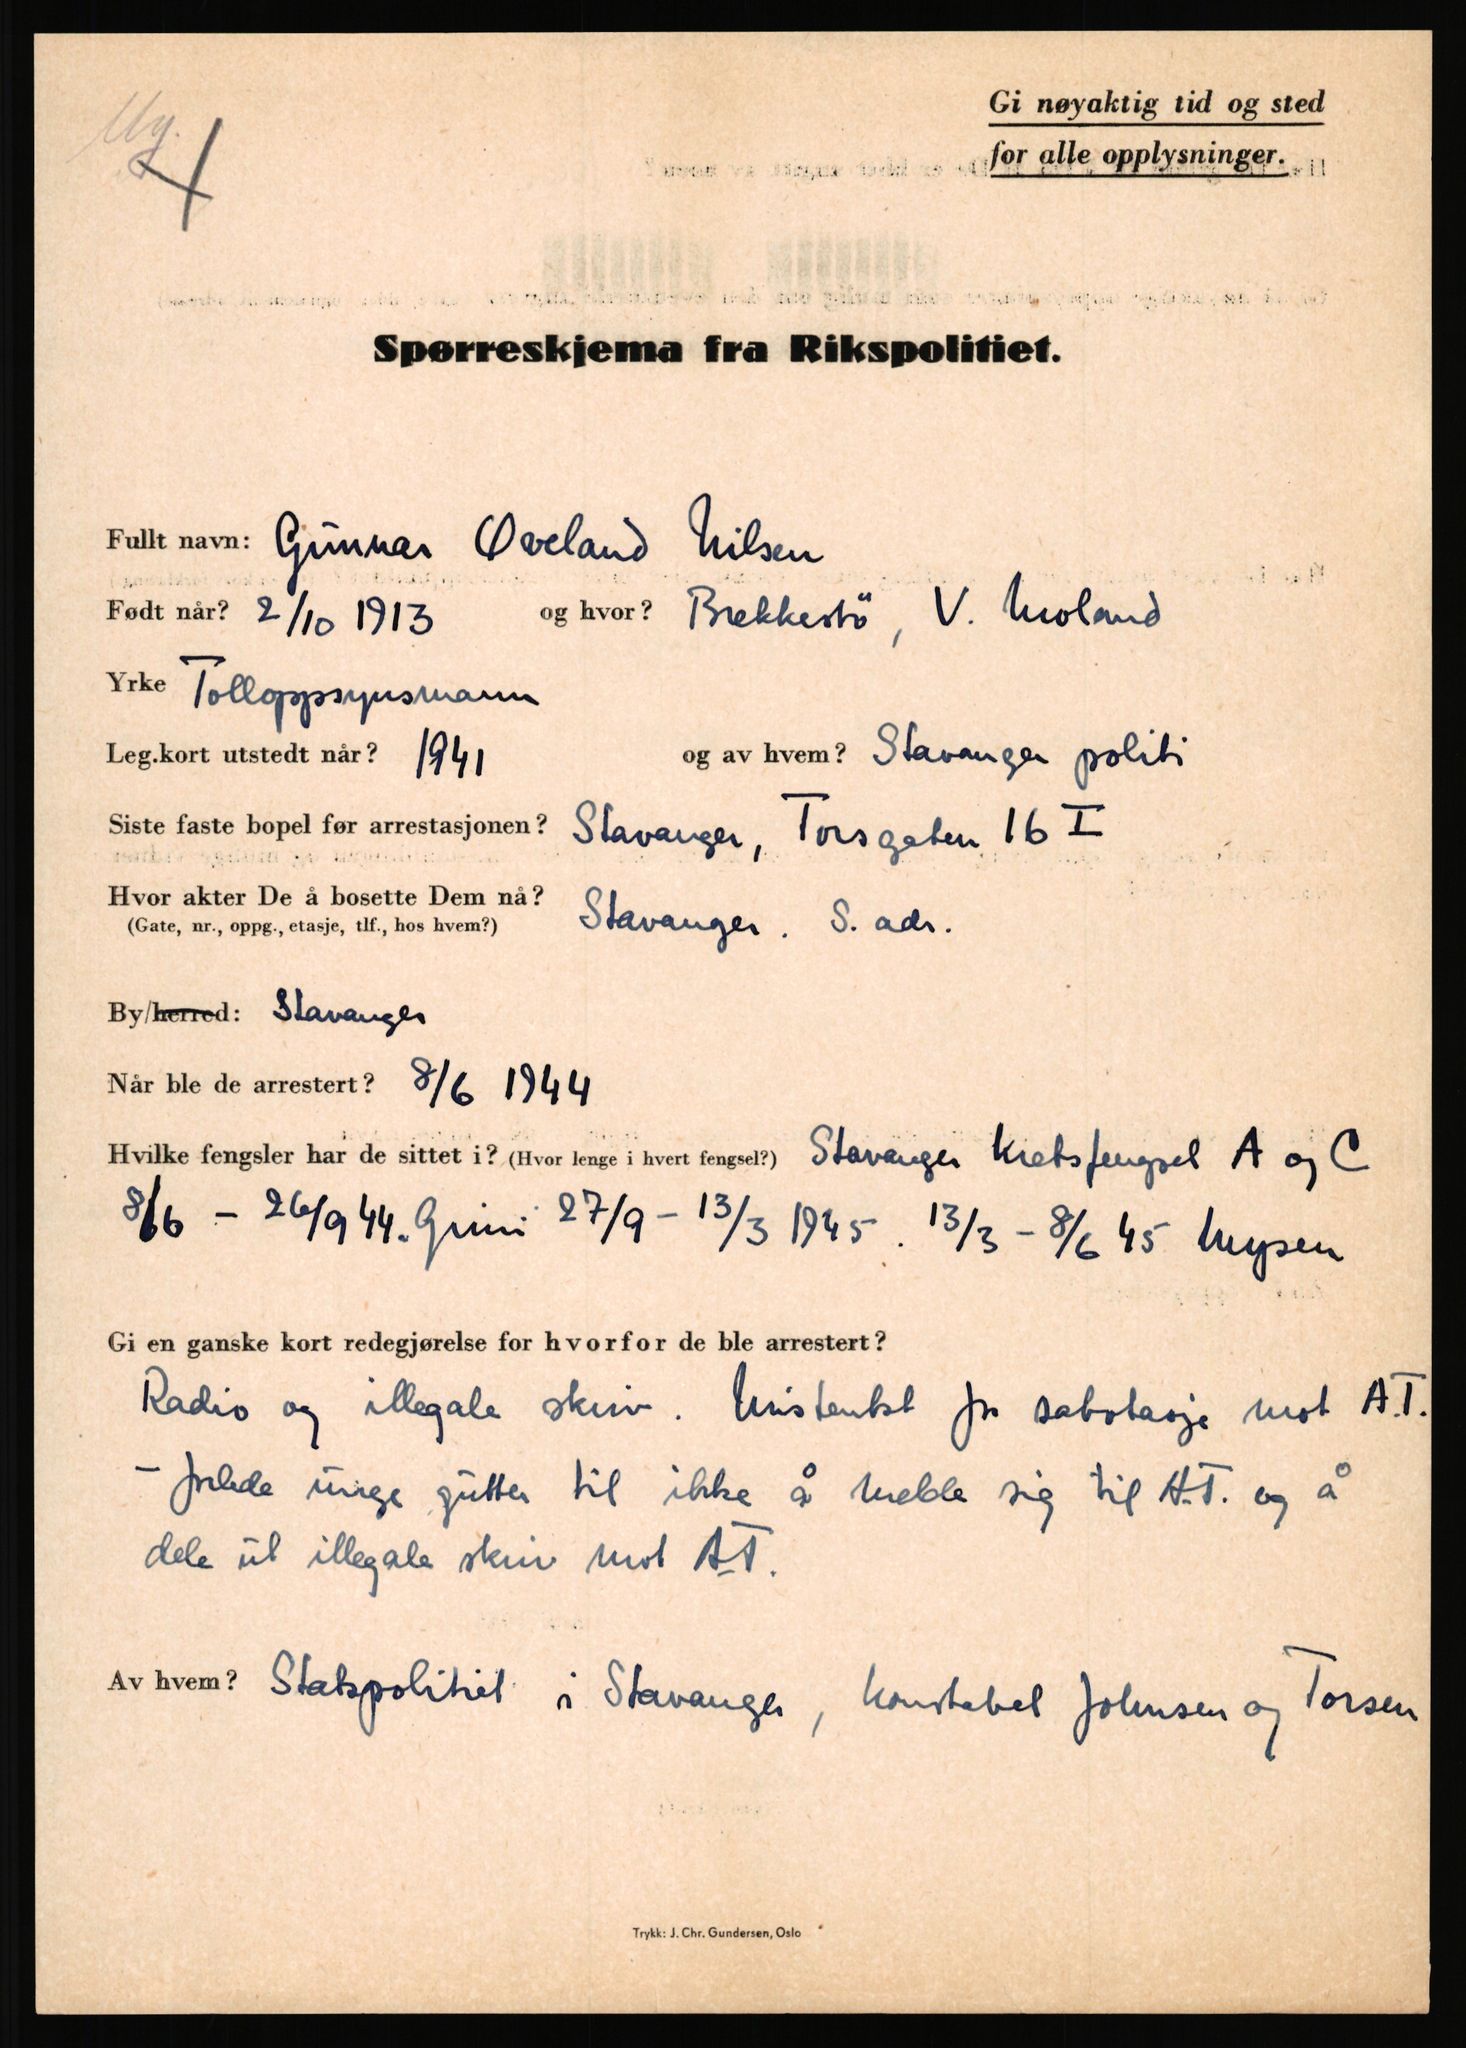 My.
Gi nøyaktig tid og sted
for alle opplysninger.
Spørreskjema fra Rikspolitiet.
Fullt navn: Gunnar Øveland Nilsen
Født når? 2/10 1913 og hvor? Brekkestö, V. Moland
Yrke Tolloppsynsmann
Leg.kort utstedt når? 1941 og av hvem? Stavanger politi
Siste faste bopel før arrestasjonen? Stavanger, Torsgaten 16 I
Hvor akter De å bosette Dem nå? Stavanger. S. adr.
(Gate, nr., oppg., etasje, tlf., hos hvem?)
By/herred: Stavanger
Når ble de arrestert? 8/6 1944
Hvilke fengsler har de sittet i? (Hvor lenge i hvert fengsel?) Stavanger Kretsfengsel A og C
8/6 - 26/9 44. Grini 27/9 - 13/3 1945. 13/3 - 8/6 45 Mysen
Gi en ganske kort redegjørelse for hvorfor de ble arrestert?
Radio og illegale skriv. Mistenkt for sabotasje mot A.T.
- unge gutter til ikke å melde sig til A.T. og å
dele ut illegale skriv mot A.T.
Av hvem? Statspolitiet i Stavanger, konstabel Johnsen og Torsen
Trykk: J. Chr. Gundersen, Oslo